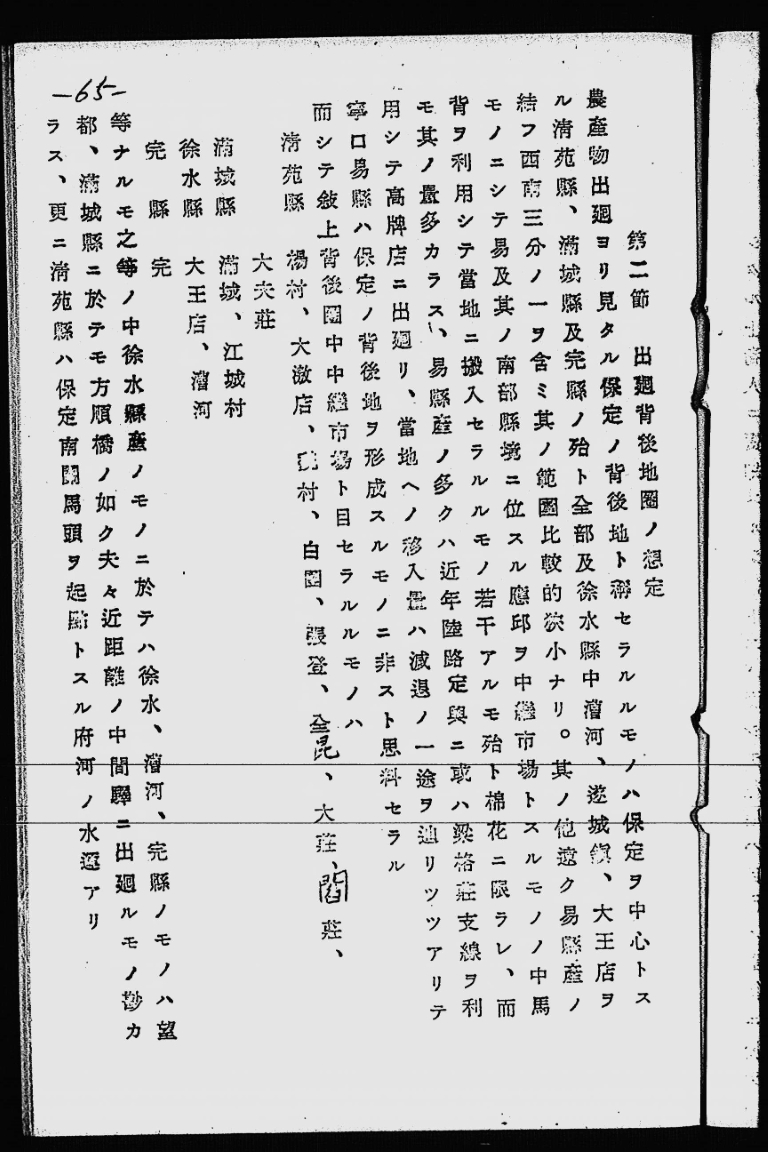 第二節　出廻背後地圈ノ想定
農產物出廻ヨリ見タル保定ノ背後地ト稱セラルルモノハ保定ヲ中心トス
ル淸苑縣、滿城縣及完縣ノ殆ト全部及徐水縣中漕河、遂城鎭、大王店ヲ
結フ西南三分ノ一ヲ含ミ其ノ範圍比較的狹小ナリ。其ノ他遠ク易縣產ノ
モノニシテ易及其ノ南部縣境ニ位スル應邱ヲ中繼市場トスルモノノ中馬
背ヲ利用シテ當地ニ搬入セラルルモノ若干アルモ殆ト棉花ニ限ラレ、而
モ其ノ量多カラス、易縣產ノ多クハ近年陸路定興ニ或ハ梁格莊支線ヲ利
用シテ高牌店ニ出廻リ、當地ヘノ移入量ハ減退ノ一途ヲ辿リツツアリテ
寧ロ易縣ハ保定ノ背後地ヲ形成スルモノニ非スト思料セラル
而シテ敍上背後圈中中繼市場ト目セラルルモノハ
淸苑縣　楊村、大激店、村、白團、張登、全昆、大莊、閻莊、
大夫莊
滿城縣　滿城、江城村
徐水縣　大王店、漕河
完縣　完
等ナルモ之等ノ中徐水縣產ノモノニ於テハ徐水、漕河、完縣ノモノハ望
都、滿城縣ニ於テモ方順橋ノ如ク夫々近距離ノ中間驛ニ出廻ルモノ尠カ
ラス、更ニ淸苑縣ハ保定南關馬頭ヲ起點トスル府河ノ水運アリ
—65—